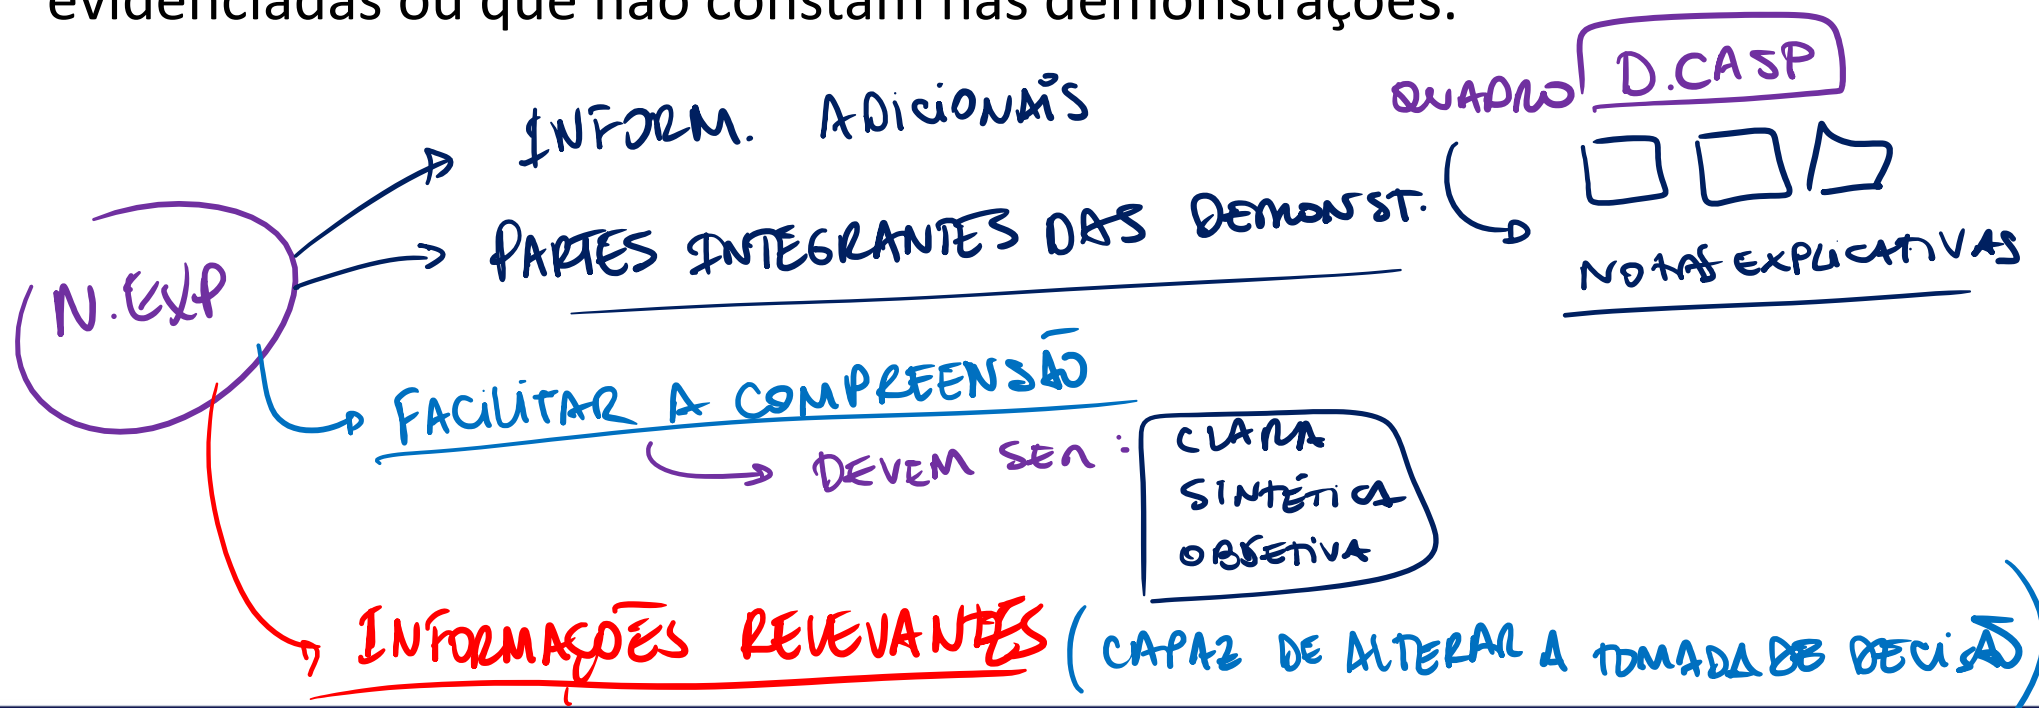 evidenciadas ou que não constam nas demonstrações.
QUADRO D.CASP
INFORM. ADICIONAIS
PARTES INTEGRANTES DAS DEMONST.
NOTAS EXPLICATIVAS
N.EXP
FACILITAR A COMPREENSÃO
DEVEM SER:
CLARA
SINTÉTICA
OBJETIVA
INFORMAÇÕES RELEVANTES (CAPAZ DE ALTERAR A TOMADA DE DECISÃO)